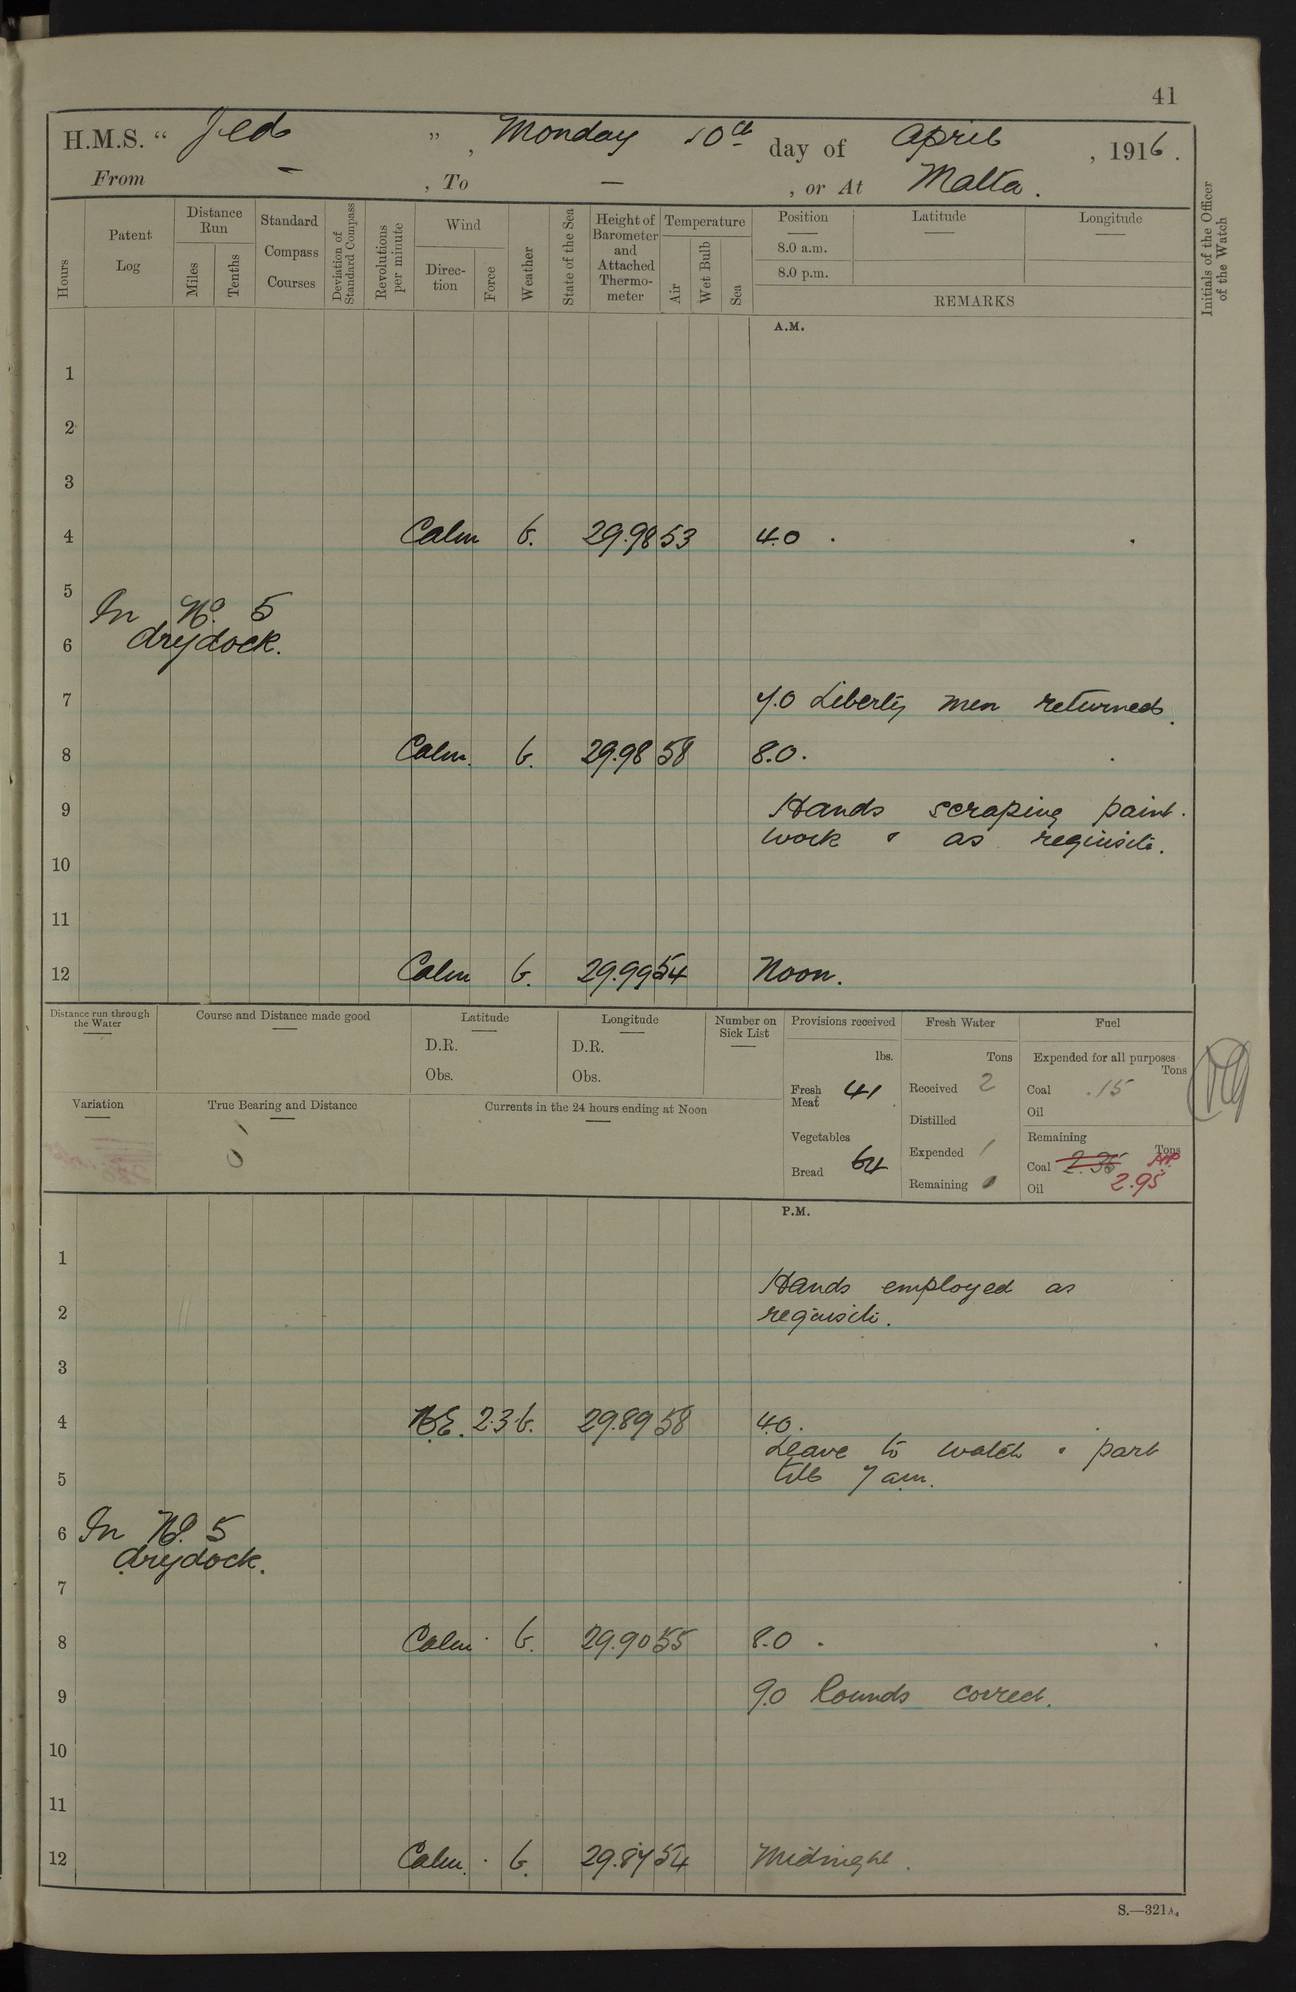 41
H.M.S. “ Jed ” , Monday 10th day of April , 1916 .
From — , To — , or At Malta .
Hours
Patent Log
Distance Run
Miles
Tenths
Standard Compass Courses
Deviation of Standard Compass
Revolutions per minute
Wind
Direction
Force
Weather
State of the Sea
Height of Barometer and Attached Thermometer
Temperature
Air
Wet Bulb
Sea
Position
Latitude
Longitude
8.0 a.m.
8.0 p.m.
REMARKS
Initials of the Officer of the Watch
A.M.
1
2
3
4 Calm b. 29.98 53 4.0 .
5
In No. 5
6 drydock.
7 7.0 Liberty men returned.
8 Calm. b. 29.98 58 8.0 .
9 Hands scraping paint.
work & as requisite.
10
11
12 Calm b. 29.99 54 Noon.
Distance run through the Water
Course and Distance made good
Latitude
D.R.
Obs.
Longitude
D.R.
Obs.
Number on Sick List
Provisions received
lbs.
Fresh Meat 41
Vegetables
Bread 64
Fresh Water
Tons
Received 2
Distilled
Expended 1
Remaining
Fuel
Expended for all purposes
Tons
Coal .15
Oil
Remaining
Tons
Coal 2.95
Oil
Variation
True Bearing and Distance
Currents in the 24 hours ending at Noon
P.M.
1
Hands employed as
2 requisite.
3
4 N.E. 2.3 b. 29.89 58 4.0 .
Leave to watch & part
5 till 7 am.
6 In No. 5
drydock.
7
8 Calm b. 29.90 55 8.0 .
9 9.0 Rounds correct.
10
11
12 Calm. b. 29.87 54 Midnight .
S.—321A.